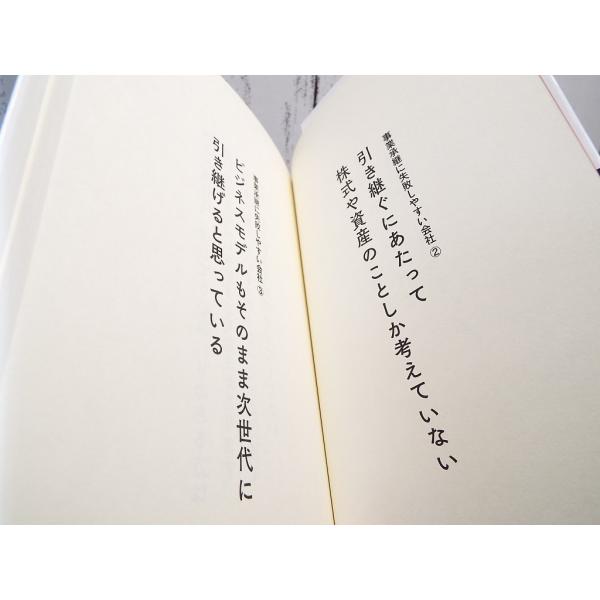 事業承継に失敗しやすい会社 ②
引き継ぐにあたって
株式や資産のことしか考えていない
事業承継に失敗しやすい会社 ③
ビジネスモデルもそのまま次世代に
引き継げると思っている